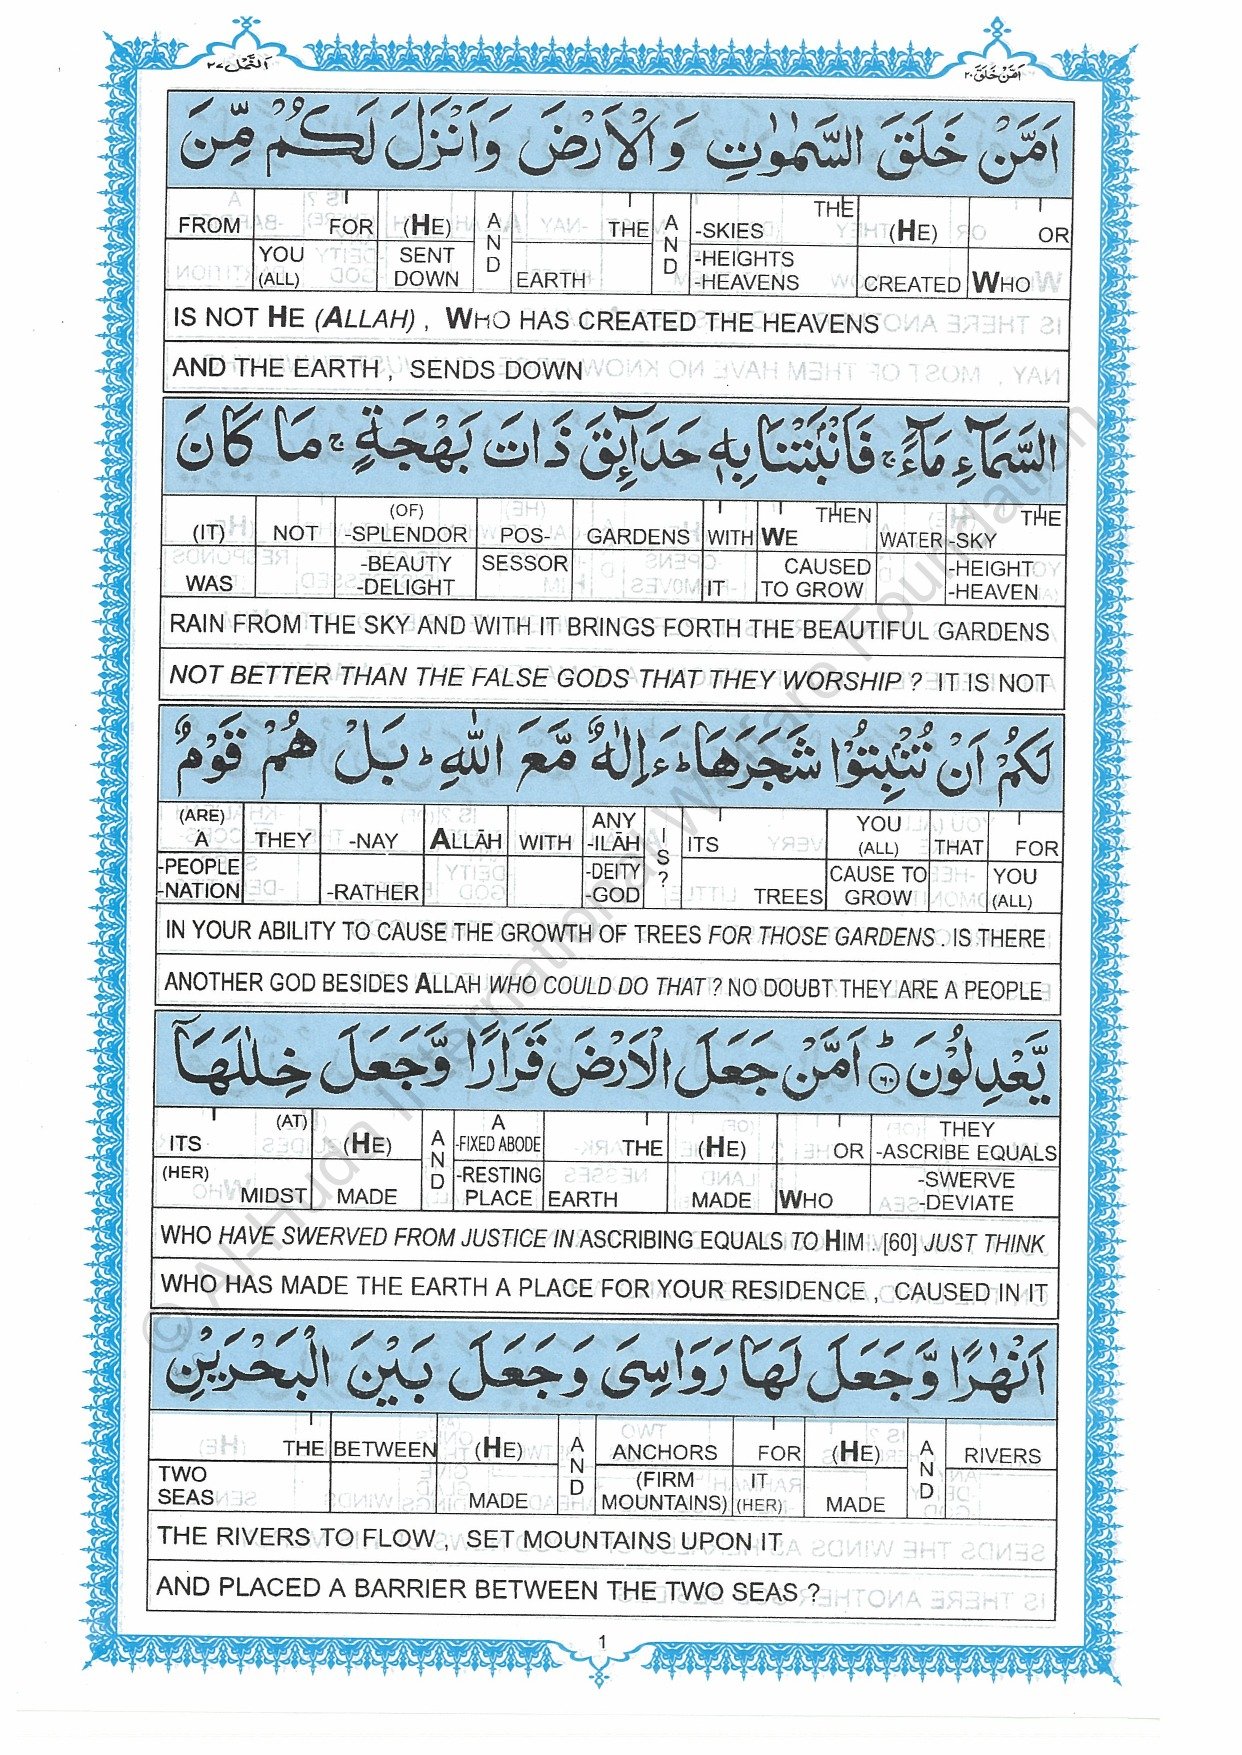 اَمَّنْ خَلَقَ ٢٠
اَلنَّمْل ٢٧
اَمَّنْ خَلَقَ السَّمٰوٰتِ وَ الْاَرْضَ وَ اَنْزَلَ لَكُمْ مِّنَ
FROM FOR (HE) A THE A -SKIES THE (HE) OR
YOU (ALL) SENT DOWN N D EARTH N D -HEIGHTS -HEAVENS CREATED WHO
IS NOT HE (ALLAH) , WHO HAS CREATED THE HEAVENS
AND THE EARTH , SENDS DOWN
السَّمَآءِ مَآءً ۚ فَاَنْۢبَتْنَا بِهٖ حَدَآئِقَ ذَاتَ بَهْجَةٍ ۚ مَا كَانَ
(IT) NOT (OF) -SPLENDOR POS- GARDENS WITH WE THEN WATER -SKY THE
WAS -BEAUTY -DELIGHT SESSOR IT CAUSED TO GROW -HEIGHT -HEAVEN
RAIN FROM THE SKY AND WITH IT BRINGS FORTH THE BEAUTIFUL GARDENS
NOT BETTER THAN THE FALSE GODS THAT THEY WORSHIP ? IT IS NOT
لَكُمْ اَنْ تُنْۢبِتُوْا شَجَرَهَا ؕ ءَ اِلٰهٌ مَّعَ اللّٰهِ ؕ بَلْ هُمْ قَوْمٌ
(ARE) A THEY -NAY ALLĀH WITH ANY -ILĀH I ITS YOU (ALL) THAT FOR
-PEOPLE -NATION -RATHER -DEITY -GOD S ? TREES CAUSE TO GROW YOU (ALL)
IN YOUR ABILITY TO CAUSE THE GROWTH OF TREES FOR THOSE GARDENS . IS THERE
ANOTHER GOD BESIDES ALLAH WHO COULD DO THAT ? NO DOUBT THEY ARE A PEOPLE
يَّعْدِلُوْنَ ؕ ٦٠ اَمَّنْ جَعَلَ الْاَرْضَ قَرَارًا وَّ جَعَلَ خِلٰلَهَاۤ
ITS (AT) (HE) A A -FIXED ABODE THE (HE) OR THEY -ASCRIBE EQUALS
(HER) MIDST MADE N D -RESTING PLACE EARTH MADE WHO -SWERVE -DEVIATE
WHO HAVE SWERVED FROM JUSTICE IN ASCRIBING EQUALS TO HIM . [60] JUST THINK
WHO HAS MADE THE EARTH A PLACE FOR YOUR RESIDENCE , CAUSED IN IT
اَنْهٰرًا وَّ جَعَلَ لَهَا رَوَاسِىَ وَ جَعَلَ بَيْنَ الْبَحْرَيْنِ
THE BETWEEN (HE) A ANCHORS FOR (HE) A RIVERS
TWO SEAS MADE N D (FIRM MOUNTAINS) IT (HER) MADE N D
THE RIVERS TO FLOW , SET MOUNTAINS UPON IT
AND PLACED A BARRIER BETWEEN THE TWO SEAS ?
1
© Al-Huda International Welfare Foundation